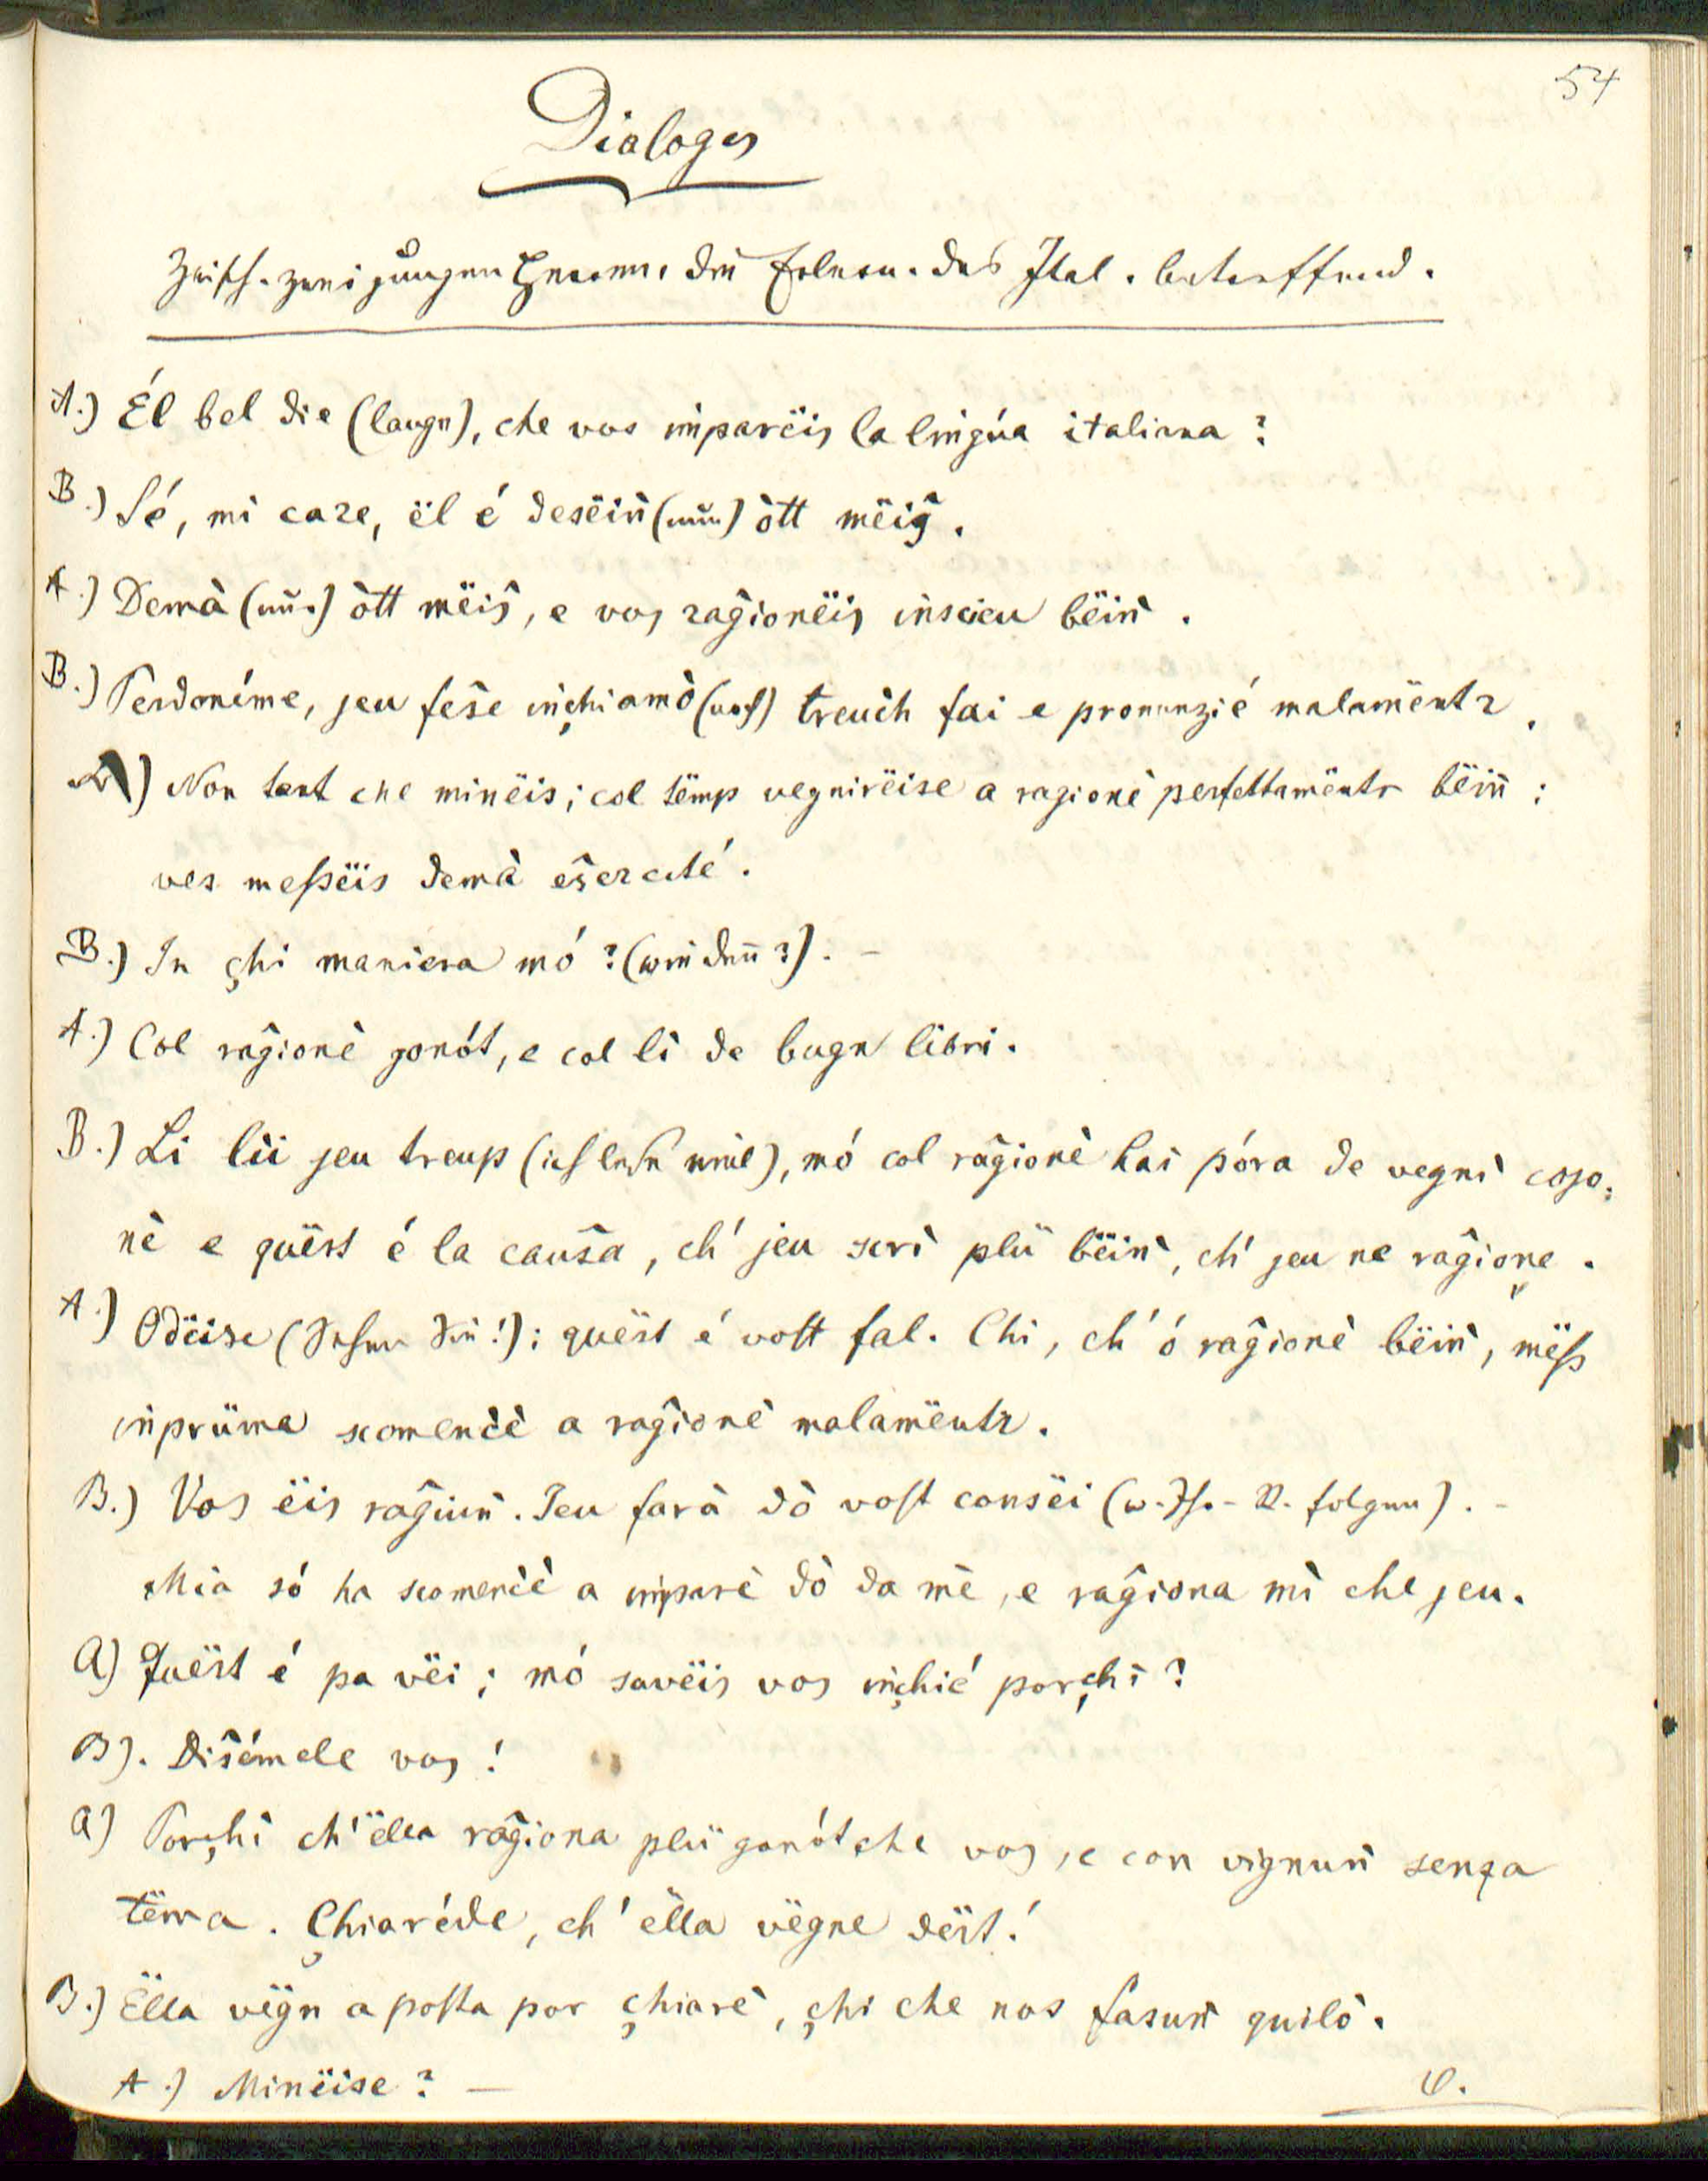 54
Dialoges
zwisch. zwei jungen Herrn, die Erlern. das Ital. betreffend.
A.) Él bel die (lange), che vos imparëis la lingúa italiana?
B.) Sé, mi care, ël é desëiǹ (nun) òtt mëiŝ.
A.) Demà (nur) òtt mëiŝ, e vos raĝionëis inscieu bëiǹ.
B.) Perdonéme, jeu feŝe inçhiamò (noch) treuch fai e pronunzié malamëntr.
A) Non tant che minëis; col tëmp vegnirëise a ragionè perfettamëntr bëiǹ;
ves messëis demà eŝercité.
B.) In çhi maniera mó? (wie denn?). –
A.) Col raĝionè gonót, e col lì de bugn libri.
B.) Li lìi jeu treup (ich lese viel), mó col raĝionè hai póra de vegnì cojo:
nè e quëst é la cauŝa, ch' jeu scrì plü bëiǹ, ch' jeu ne raĝione.
A.) Odëise (Sehen Sie!); quëst é vost fal. Chi, ch' ó raĝionè bëiǹ, mëss
inprüma scomenćè a raĝionè malamëntr.
B.) Vos ëis raĝiuǹ. Jeu farà dò vost consëi (w. Ih. – R. folgen). –
Mia só ha scomenćè a imparè dò da mè, e raĝiona mì che jeu.
A) Quëst é pa vëi; mó savëis vos inçhié porçhì?
B). Diŝémele vos!
A) Porçhì ch'ëlla raĝiona plü gonót che vos, e con vignuǹ senza
tëma. Çhiaréde, ch' ëlla vëgne dërt!
B.) Ëlla vëgn aposta por çhiarè, çhi che nos fasuǹ quilò.
A.) Minëise? –